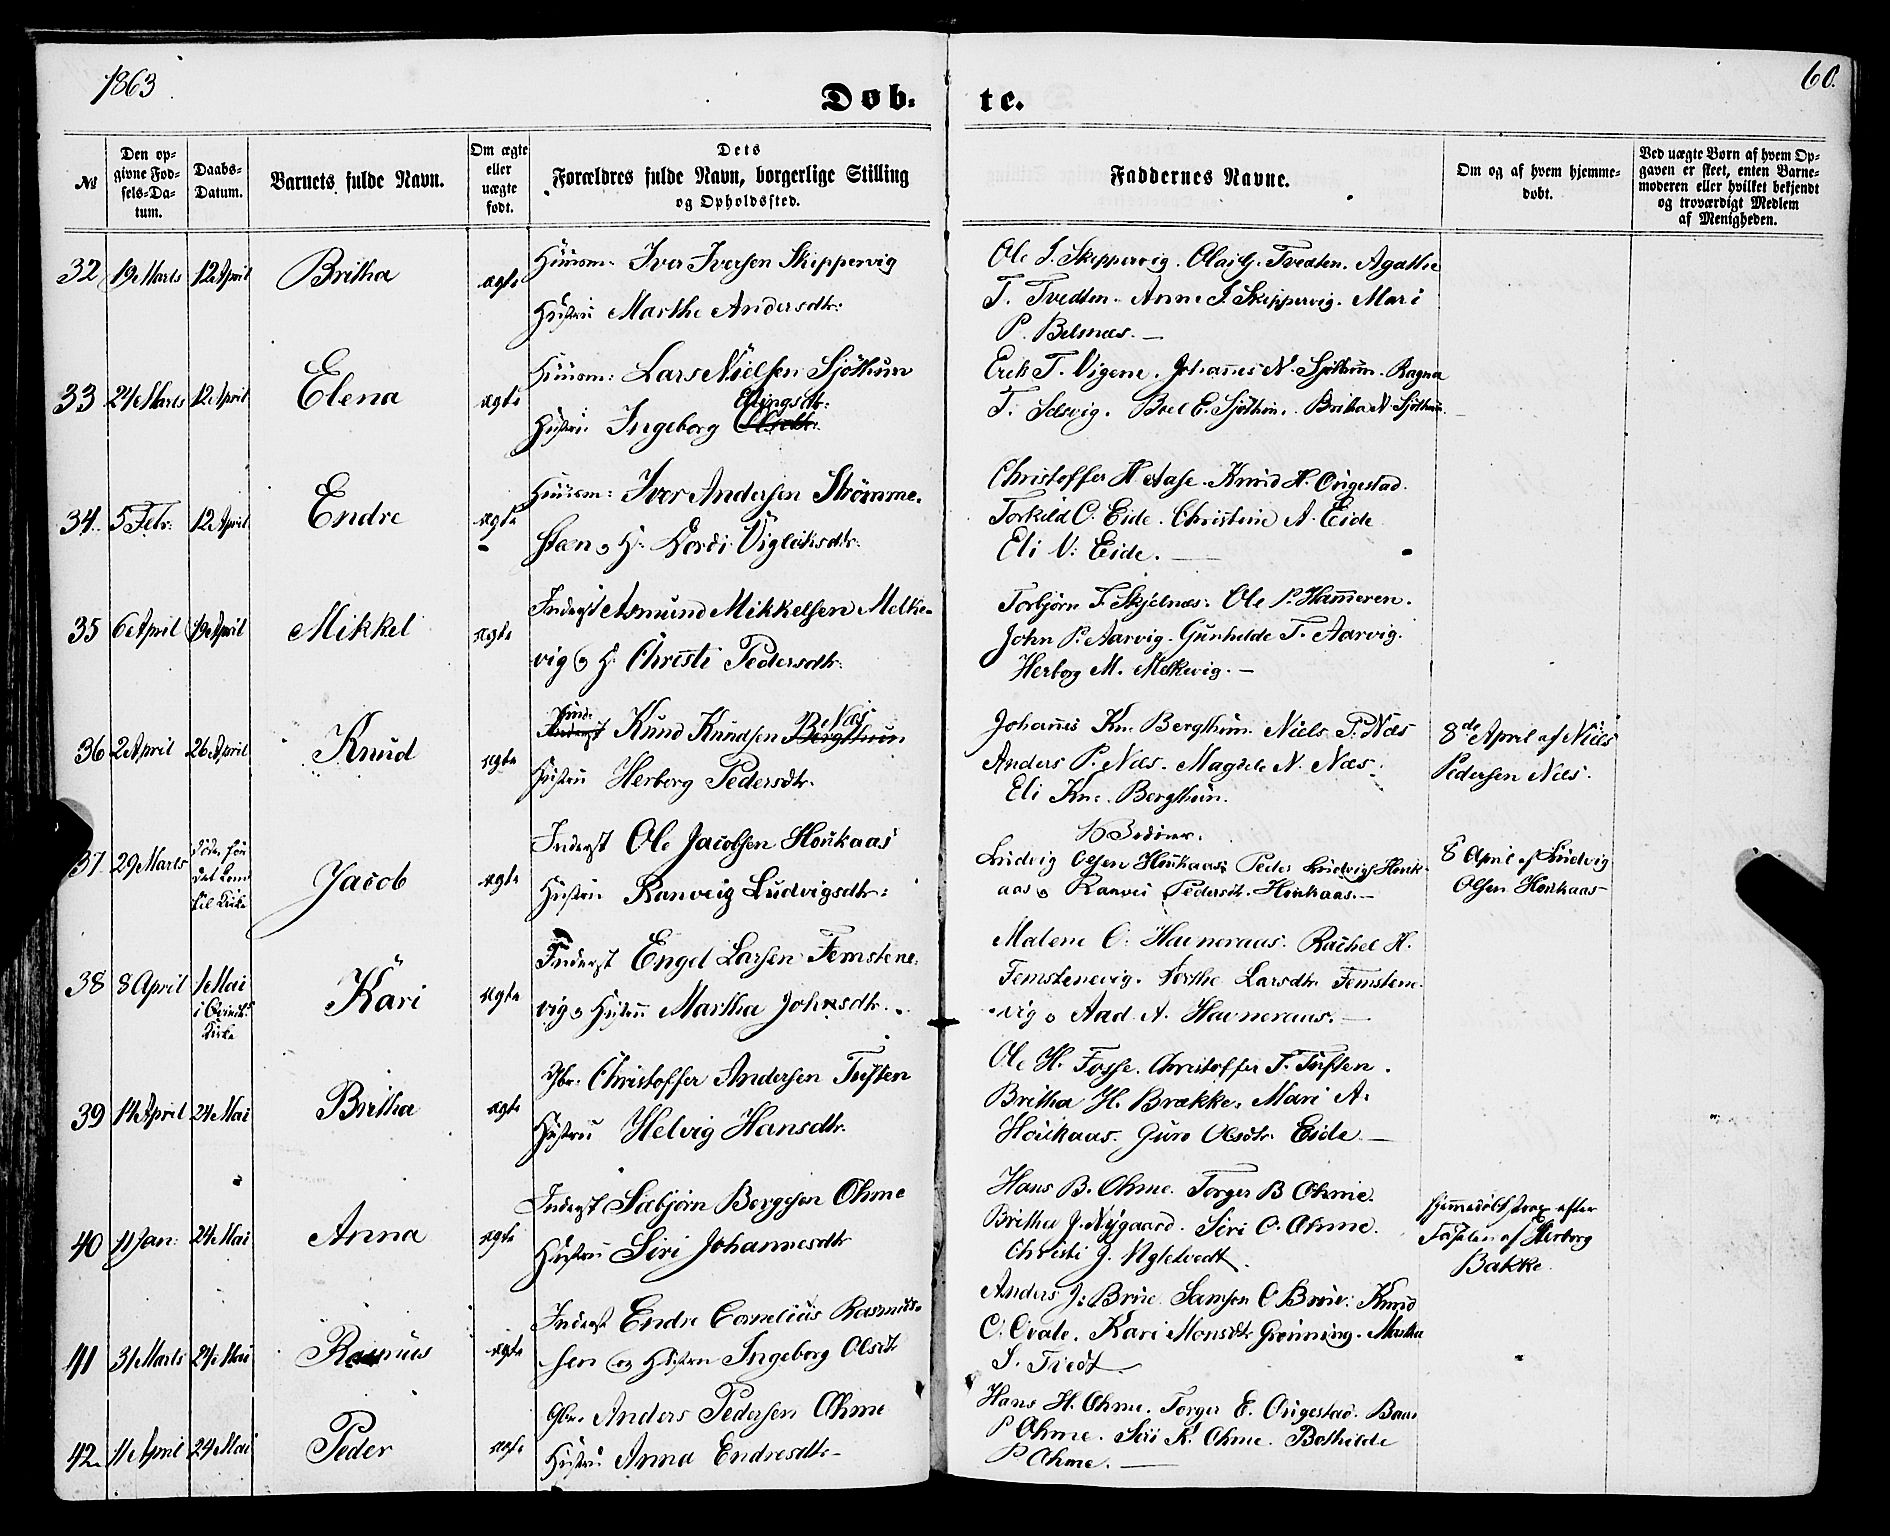 1863
60.
Døb-
te.
№
Den op-
givne Fød-
sels-Da-
tum.
Daabs-
Datum.
Barnets fulde Navn.
Om ægte
eller
uægte
født.
Dets
Forældres fulde Navn, borgerlige Stilling
og Opholdssted.
Faddernes Navne.
Om og af hvem hjemme-
døbt.
Ved uægte Børn af hvem Op-
gaven er skeet, enten Barne-
moderen eller hvilket bekjendt
og troværdigt Medlem
af Menigheden.
32 19 Marts 12 April Britha ægte
Huusm. Iver Iversen Skippervig
Hustru Marthe Andersdtr:
Ole I. Skippervig. Tvedten. Agathe
T. Tvedten. Anne I. Skippervig. Mari
P. Belsnæs.
33 24 Marts 12 April Elena ægte
Huusm: Lars Nielsen Sjöthun
Ellingsdtr:
Hustru Ingeborg
Erik T. Vigene. Johañes N. Sjöthun. Ragna
T. Selsvig. E. Sjöthun. Britha N. Sjöthun.
34. 5 Febr: 12 April Endre ægte
Huusm: Iver Andersen Strömme.
H: Viglaksdtr.
Christoffer H. Aase. Knud H. Ougestad.
Torkild O. Eide. Christine A. Eide
Eli V: Eide.
35 6 April 19 April Mikkel ægte
Inderst Asmund Mikkelsen Melke-
vig og H: Christi Pedersdtr:
Torbjörn T. Skjelnæs. Ole P. Hammeren.
John P. Aarvig. Gunhilde T. Aarvig.
Herborg M. Melkevig.
36 2 April 26 April Knud ægte
Næs
Inderst Knud Knudsen Bergthun
Hustru Herborg Pedersdtr.
Johañes Kn. Bergthun. Niels P. Næs
Anders P. Næs. Magdele N. Næs.
Eli Kn. Bergthun.
8de April af Niels
Pedersen Næs.
37. 29 Marts
til Kirke
Jacob ægte
Inderst Ole Jacobsen Houkaas
Hustru Ranveig Ludvigsdtr:
Ludvig Olsen Houkaas, Peder Ludvigs. Houk-
aas og Ranvei Pedersdt. Houkaas.
8 April af Ludvig
Olsen Houkaas
38 8 April 1 Mai
Kirke
Kari ægte
Inderst Engel Larsen Femstene-
vig og Hustru Martha Johnsdtr.
Malene O: Havneraas. Rachel H.
Femstenevig. Larsdtr. Femstene-
vig og Aad A. Havneraas.
39 14 April 24 Mai Britha ægte
Gbr. Christoffer Andersen Tuften
Hustru Helvig Hansdtr.
Ole H. Fosse. Christoffer T. Tuften.
Britha H. Brække. Mari A.
Houkaas. Guro Olsdtr. Eide
40 11 Jan: 24 Mai Anna ægte
Inderst Sæbjörn Borgesen Ohme
Hustru Siri Johannesdtr
Hans B. Ohme. Torger B Ohme.
Britha J. Nygaard. Siri O. Ohme.
Christi J. Ygletvedt.
Hjemmedöbt strax efter
Födselen af Herborg
Bakke.
41 31 Marts 24 Mai Rasmus ægte
Inderst Endre Cornelius Rasmus-
sen og Hustru Ingeborg Olsdt
Anders J: Brue. Samson O Brue. Knud
O: Kari Monsdtr Grönning. Martha
42. 11 April 24 Mai Peder ægte
Gbr. Anders Pedersen Ohme
Hustru Anna Endresdtr
Hans H. Ohme. Torger E. Ougestad.
P Ohme. Siri K. Ohme. Bothilde
P Ohme.